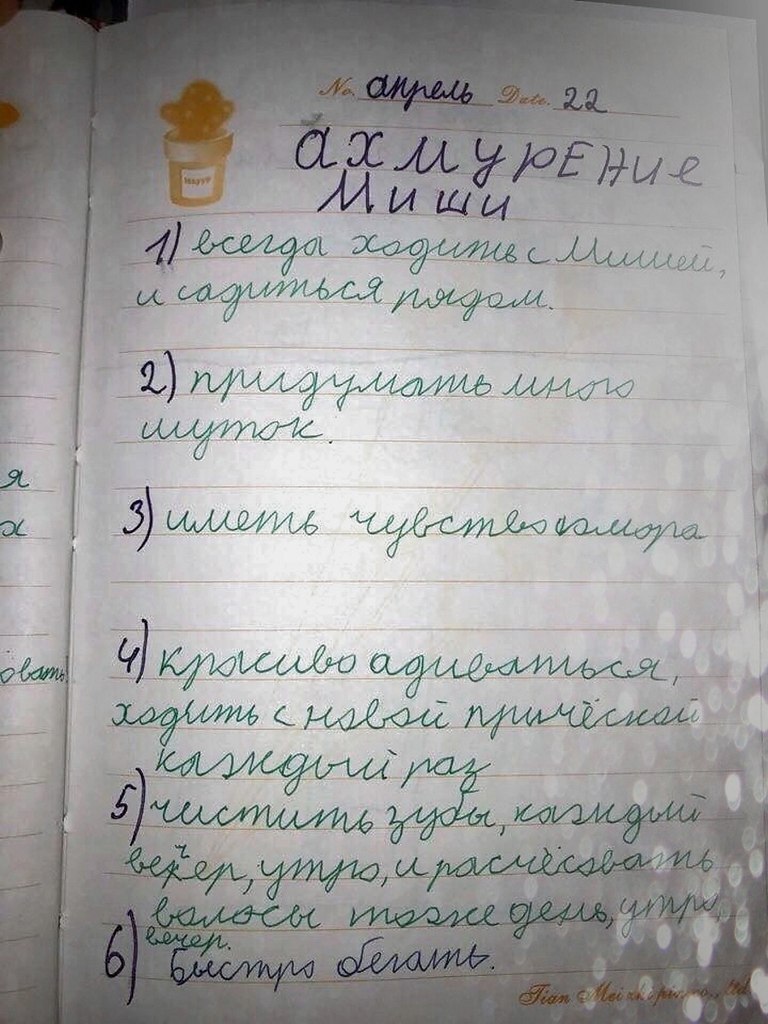 No. апрель Date. 22
HAPPY
ахмурЕНие
Миши
1) всегда ходить с Мишей,
и садиться рядом.
2) придумать много
шуток.
3) иметь чувство юмора
4) красиво адиваться,
ходить с новой причёской
каждый раз
5) чистить зубы, каждый
вечер, утро, и расчёсовать
волосы тоже день, утро,
вечер.
6) Быстро бегать.
я
х
овать